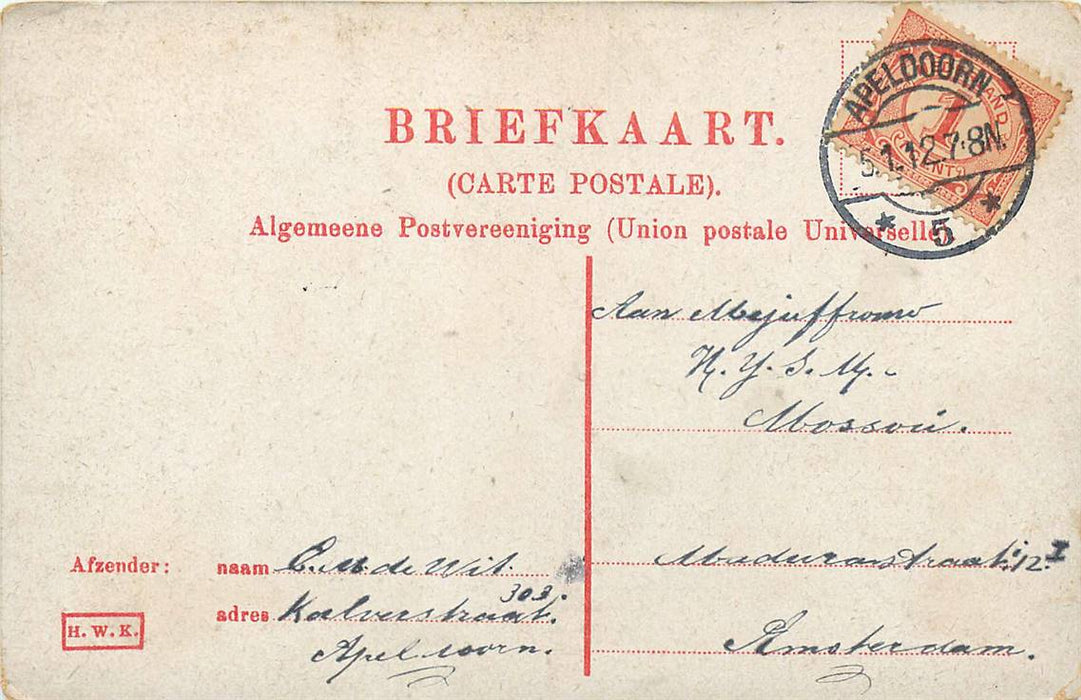 BRIEFKAART.
(CARTE POSTALE).
Algemeene Postvereeniging (Union postale Universelle)
APELDOORN
5.1.12.7-8N.
* 5 *
1
CENT
Aan Mejuffrouw
H. Y. S. M.-
Mossou.
Maduurastraat 12 I
Amsterdam.
Afzender: naam C. M. de Wit.
303.
adres Kalverstraat.
Apeldoorn.
H. W. K.